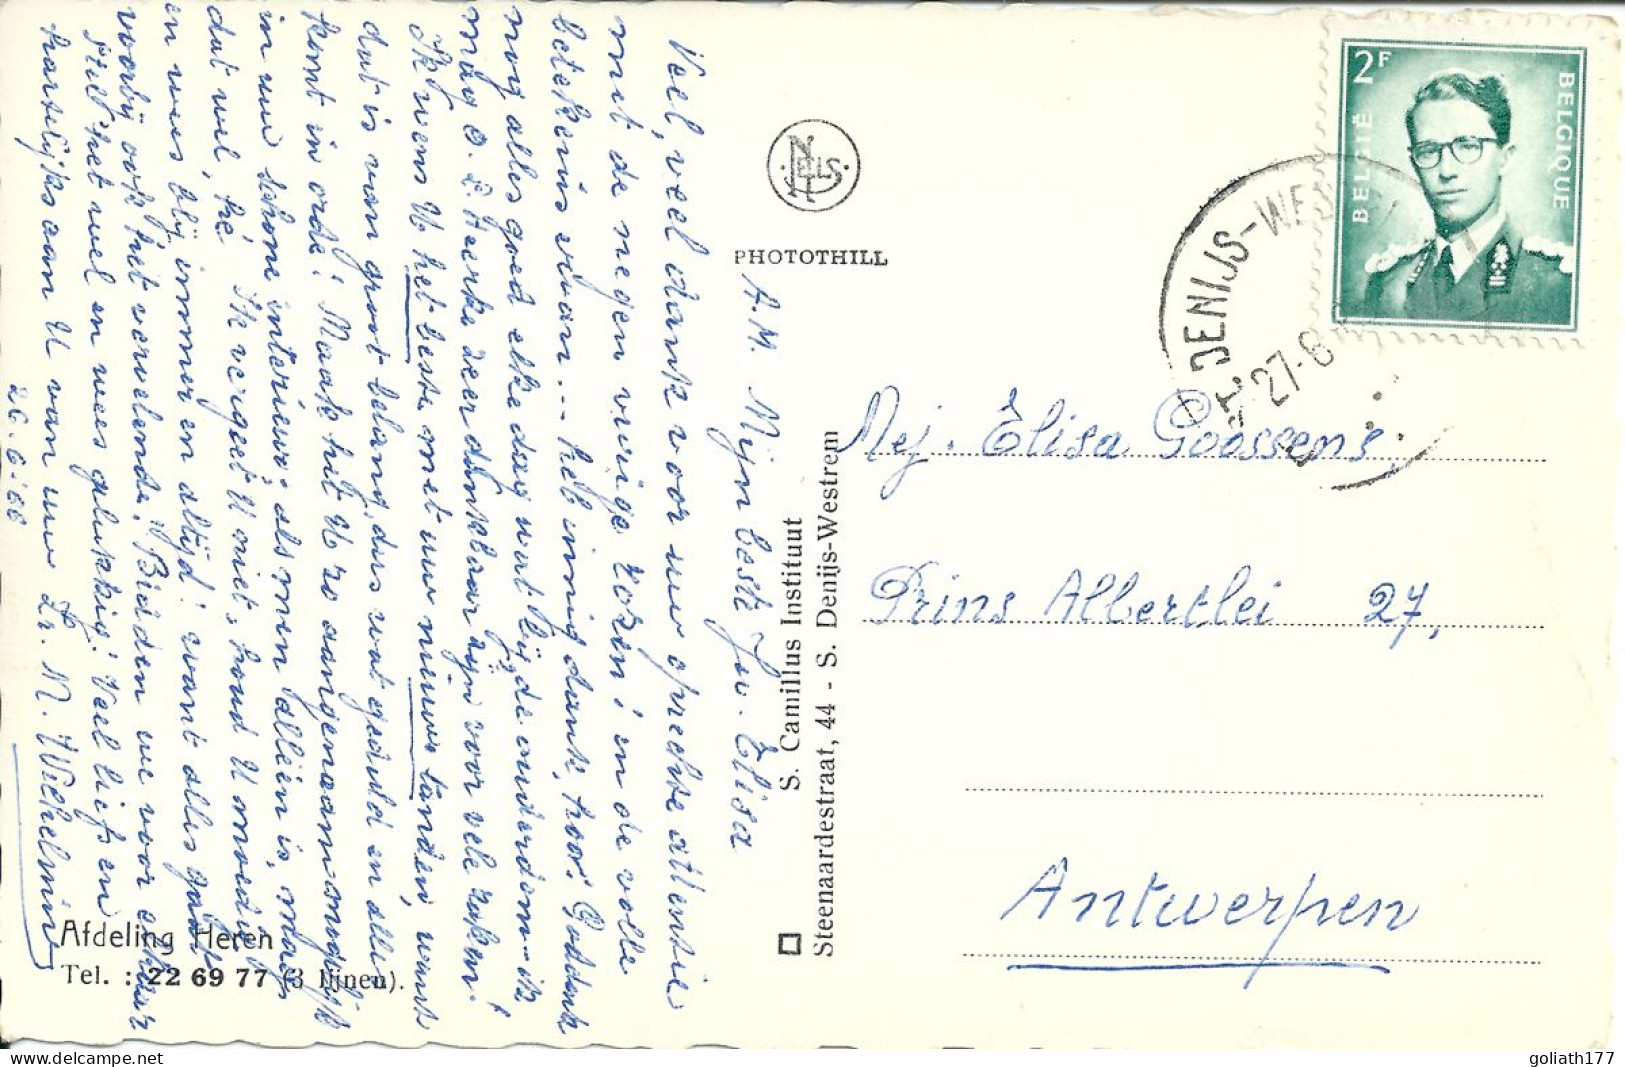 A.M. Mijn beste Juv. Elisa
Veel, veel dank voor uw oprechte attentie
mit de negen vurige rozen! in de volle
betekenis ervan... heb innig dank, hoor! Goddank
nog alles goed elke dag wat bij de ouderdom - ik
mag O. L. Heerke zeer dankbaar zijn voor vele zaken!
Ik wens U het beste met uw nieuwe tanden, want
dat is van groot belang, dus wat geduld en alles
komt in orde! Maak hit U zo aangenaam mogelijk
in uw schone interieur; als men alleen is, mag
dat wel, hé! Ik vergeet U niet, houd U moedig
en wees blij immer en altijd! want alles gaat
voorbij ook hit vervelende. Bidden we voor elkaar
Stel het wel en wees gelukkig! Veel liefs en
hartelijks aan U van uw Zr. M. Wilhelmin
26.6.66
NELS
PHOTOTHILL
S. Camillus Instituut
Steenaardestraat, 44 - S. Denijs-Westrem
Afdeling Heren
Tel. : 22 69 77 (3 lijnen).
2F
BELGIË
BELGIQUE
ST. DENIJS-WES
27-6
Mej. Elisa Goossens.
Prins Albertlei 27,
Antwerpen
goliath177